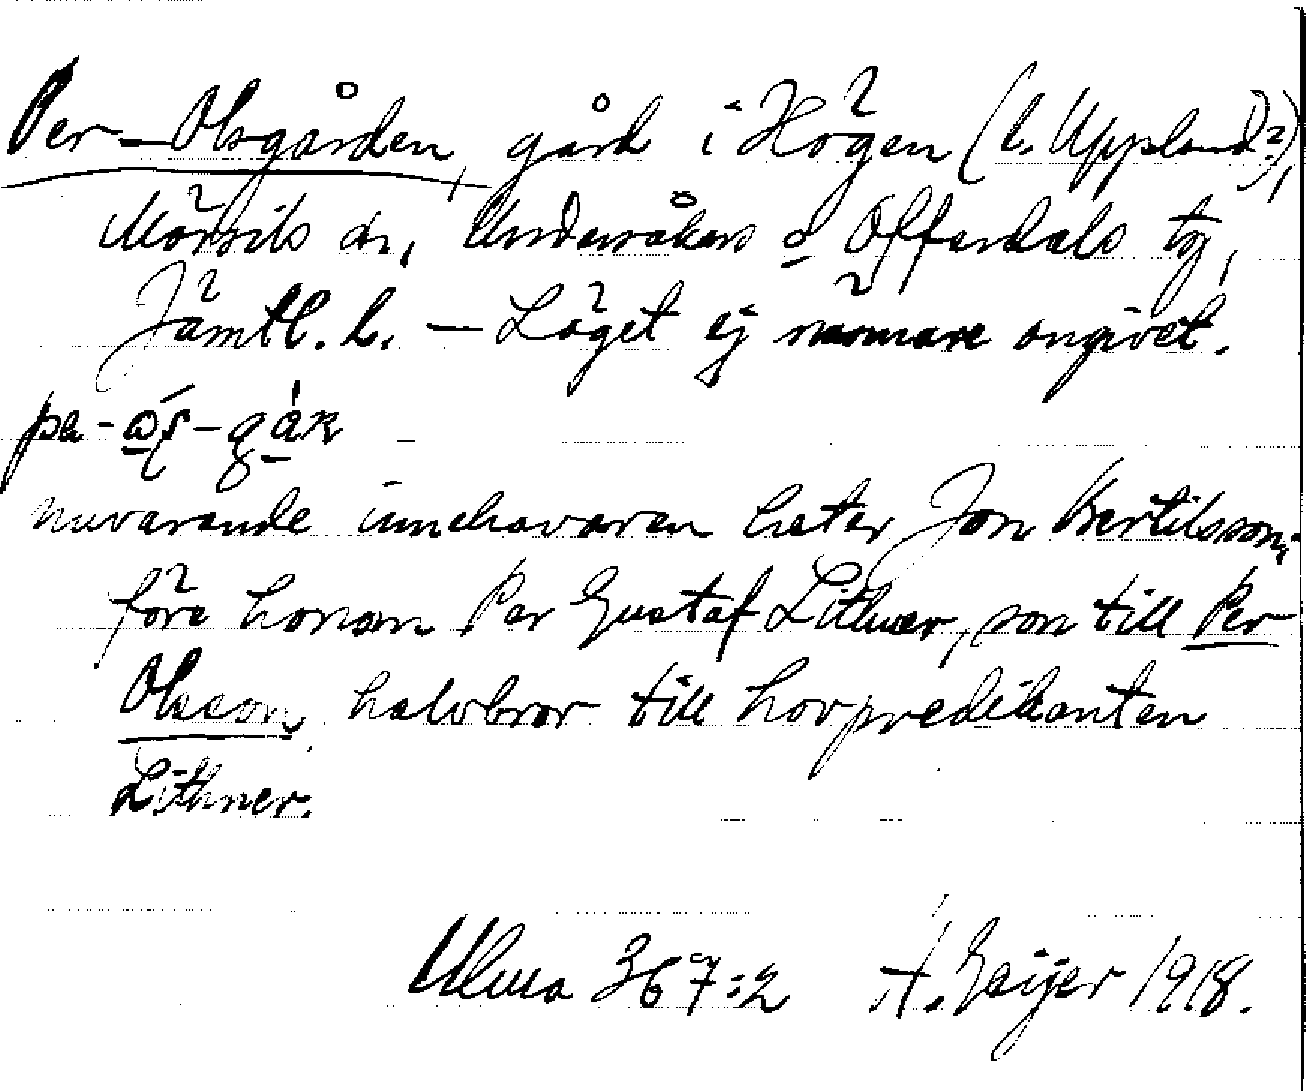 Per-Olsgården, gård i Högen (l. Uppland?),
Mörsils sn, Undersåkers o Offerdals tg,
Jämtl. l. — Läget ej närmare angivet.
nuvarande innehavaren heter Jon Bertilsson,
före honom Per Gustaf Lithner, son till Per
Olsson, halvbror till hovpredikanten
Lithner.
Ulma 367:2 H. Geijer 1918.